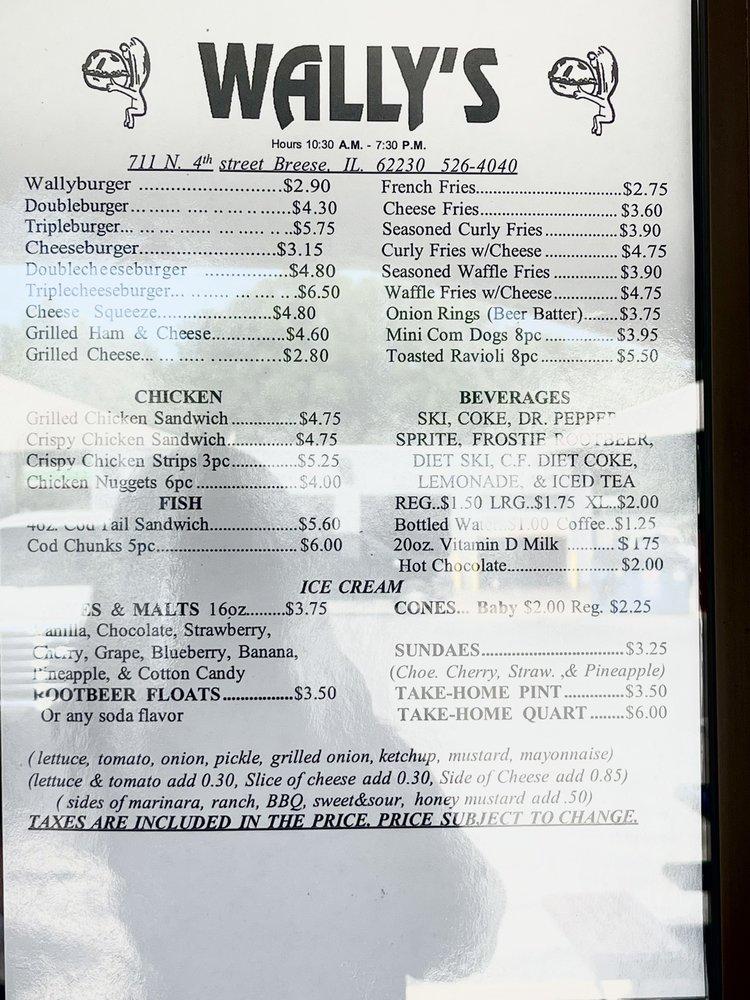 WALLY'S
Hours 10:30 A.M. - 7:30 P.M.
711 N. 4th street Breese, IL. 62230 526-4040
Wallyburger ..........................$2.90
Doubleburger... .... .. ... .. .. ....$4.30
Tripleburger... ... ...... ... .... .. ..$5.75
Cheeseburger.........................$3.15
Doublecheeseburger ...............$4.80
Triplecheeseburger... ........ ... .... ...$6.50
Cheese Squeeze....................$4.80
Grilled Ham & Cheese..............$4.60
Grilled Cheese... .... ...... ...........$2.80
French Fries..............................$2.75
Cheese Fries............................. $3.60
Seasoned Curly Fries................ $3.90
Curly Fries w/Cheese ............... $4.75
Seasoned Waffle Fries .............. $3.90
Waffle Fries w/Cheese.............. $4.75
Onion Rings (Beer Batter).......$3.75
Mini Corn Dogs 8pc .............. $3.95
Toasted Ravioli 8pc ............... $5.50
CHICKEN
Grilled Chicken Sandwich ..............$4.75
Crispy Chicken Sandwich...............$4.75
Crispy Chicken Strips 3pc..............$5.25
Chicken Nuggets 6pc ....................$4.00
FISH
4oz. Cod Tail Sandwich..................$5.60
Cod Chunks 5pc............................. $6.00
BEVERAGES
SKI, COKE, DR. PEPPER
SPRITE, FROSTIE ROOTBEER,
DIET SKI, C.F. DIET COKE,
LEMONADE, & ICED TEA
REG..$1.50 LRG..$1.75 XL..$2.00
Bottled Water..$1.00 Coffee..$1.25
20oz. Vitamin D Milk ..........$175
Hot Chocolate....................... $2.00
ICE CREAM
ES & MALTS 16oz........$3.75
Vanilla, Chocolate, Strawberry,
Cherry, Grape, Blueberry, Banana,
Pineapple, & Cotton Candy
ROOTBEER FLOATS...............$3.50
Or any soda flavor
CONES... Baby $2.00 Reg. $2.25
SUNDAES..............................$3.25
(Choc. Cherry, Straw. ,& Pineapple)
TAKE-HOME PINT .............$3.50
TAKE-HOME QUART .......$6.00
(lettuce, tomato, onion, pickle, grilled onion, ketchup, mustard, mayonnaise)
(lettuce & tomato add 0.30, Slice of cheese add 0.30, Side of Cheese add 0.85)
( sides of marinara, ranch, BBQ, sweet&sour, honey mustard add .50)
TAXES ARE INCLUDED IN THE PRICE. PRICE SUBJECT TO CHANGE.